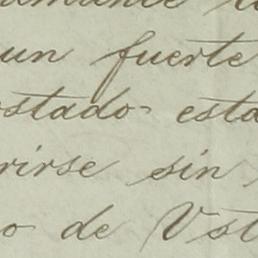 un fuerte
ostado- esta
rirse sin
o de Vst